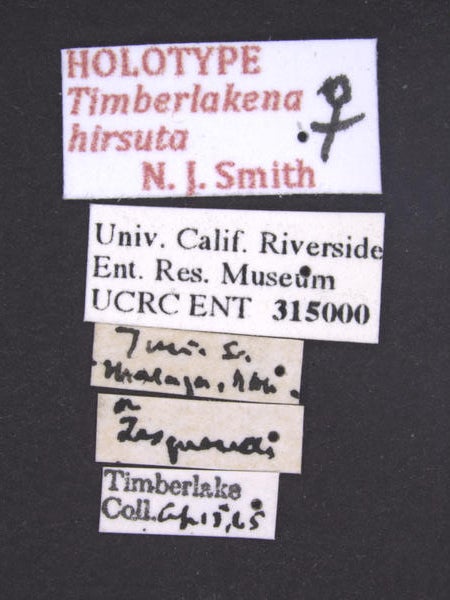 HOLOTYPE
Timberlakena ♀
hirsuta
N. J. Smith
Univ. Calif. Riverside
Ent. Res. Museum
UCRC ENT 315000
7 mi. S.
on
Timberlake
Coll. Ap. 15, 65